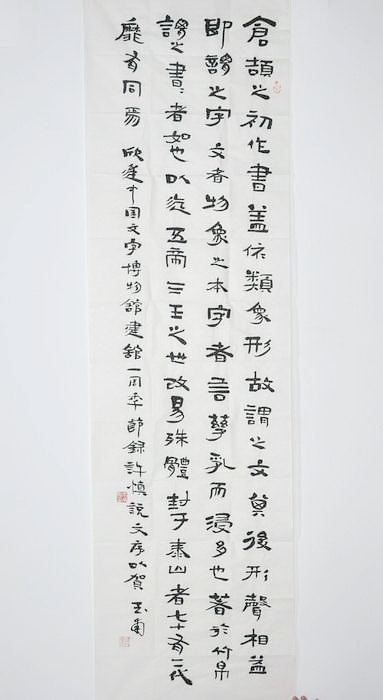 倉頡之初作書盖依類象形故謂之文其後形聲相益
即謂之字文者物象之本字者言孳乳而浸多也著於竹帛
謂之書〻者如也以迄五帝三王之世改易殊體封于泰山者七十有二代
靡有同焉 欣逢中国文字博物館建館一周年節錄許慎說文序以賀